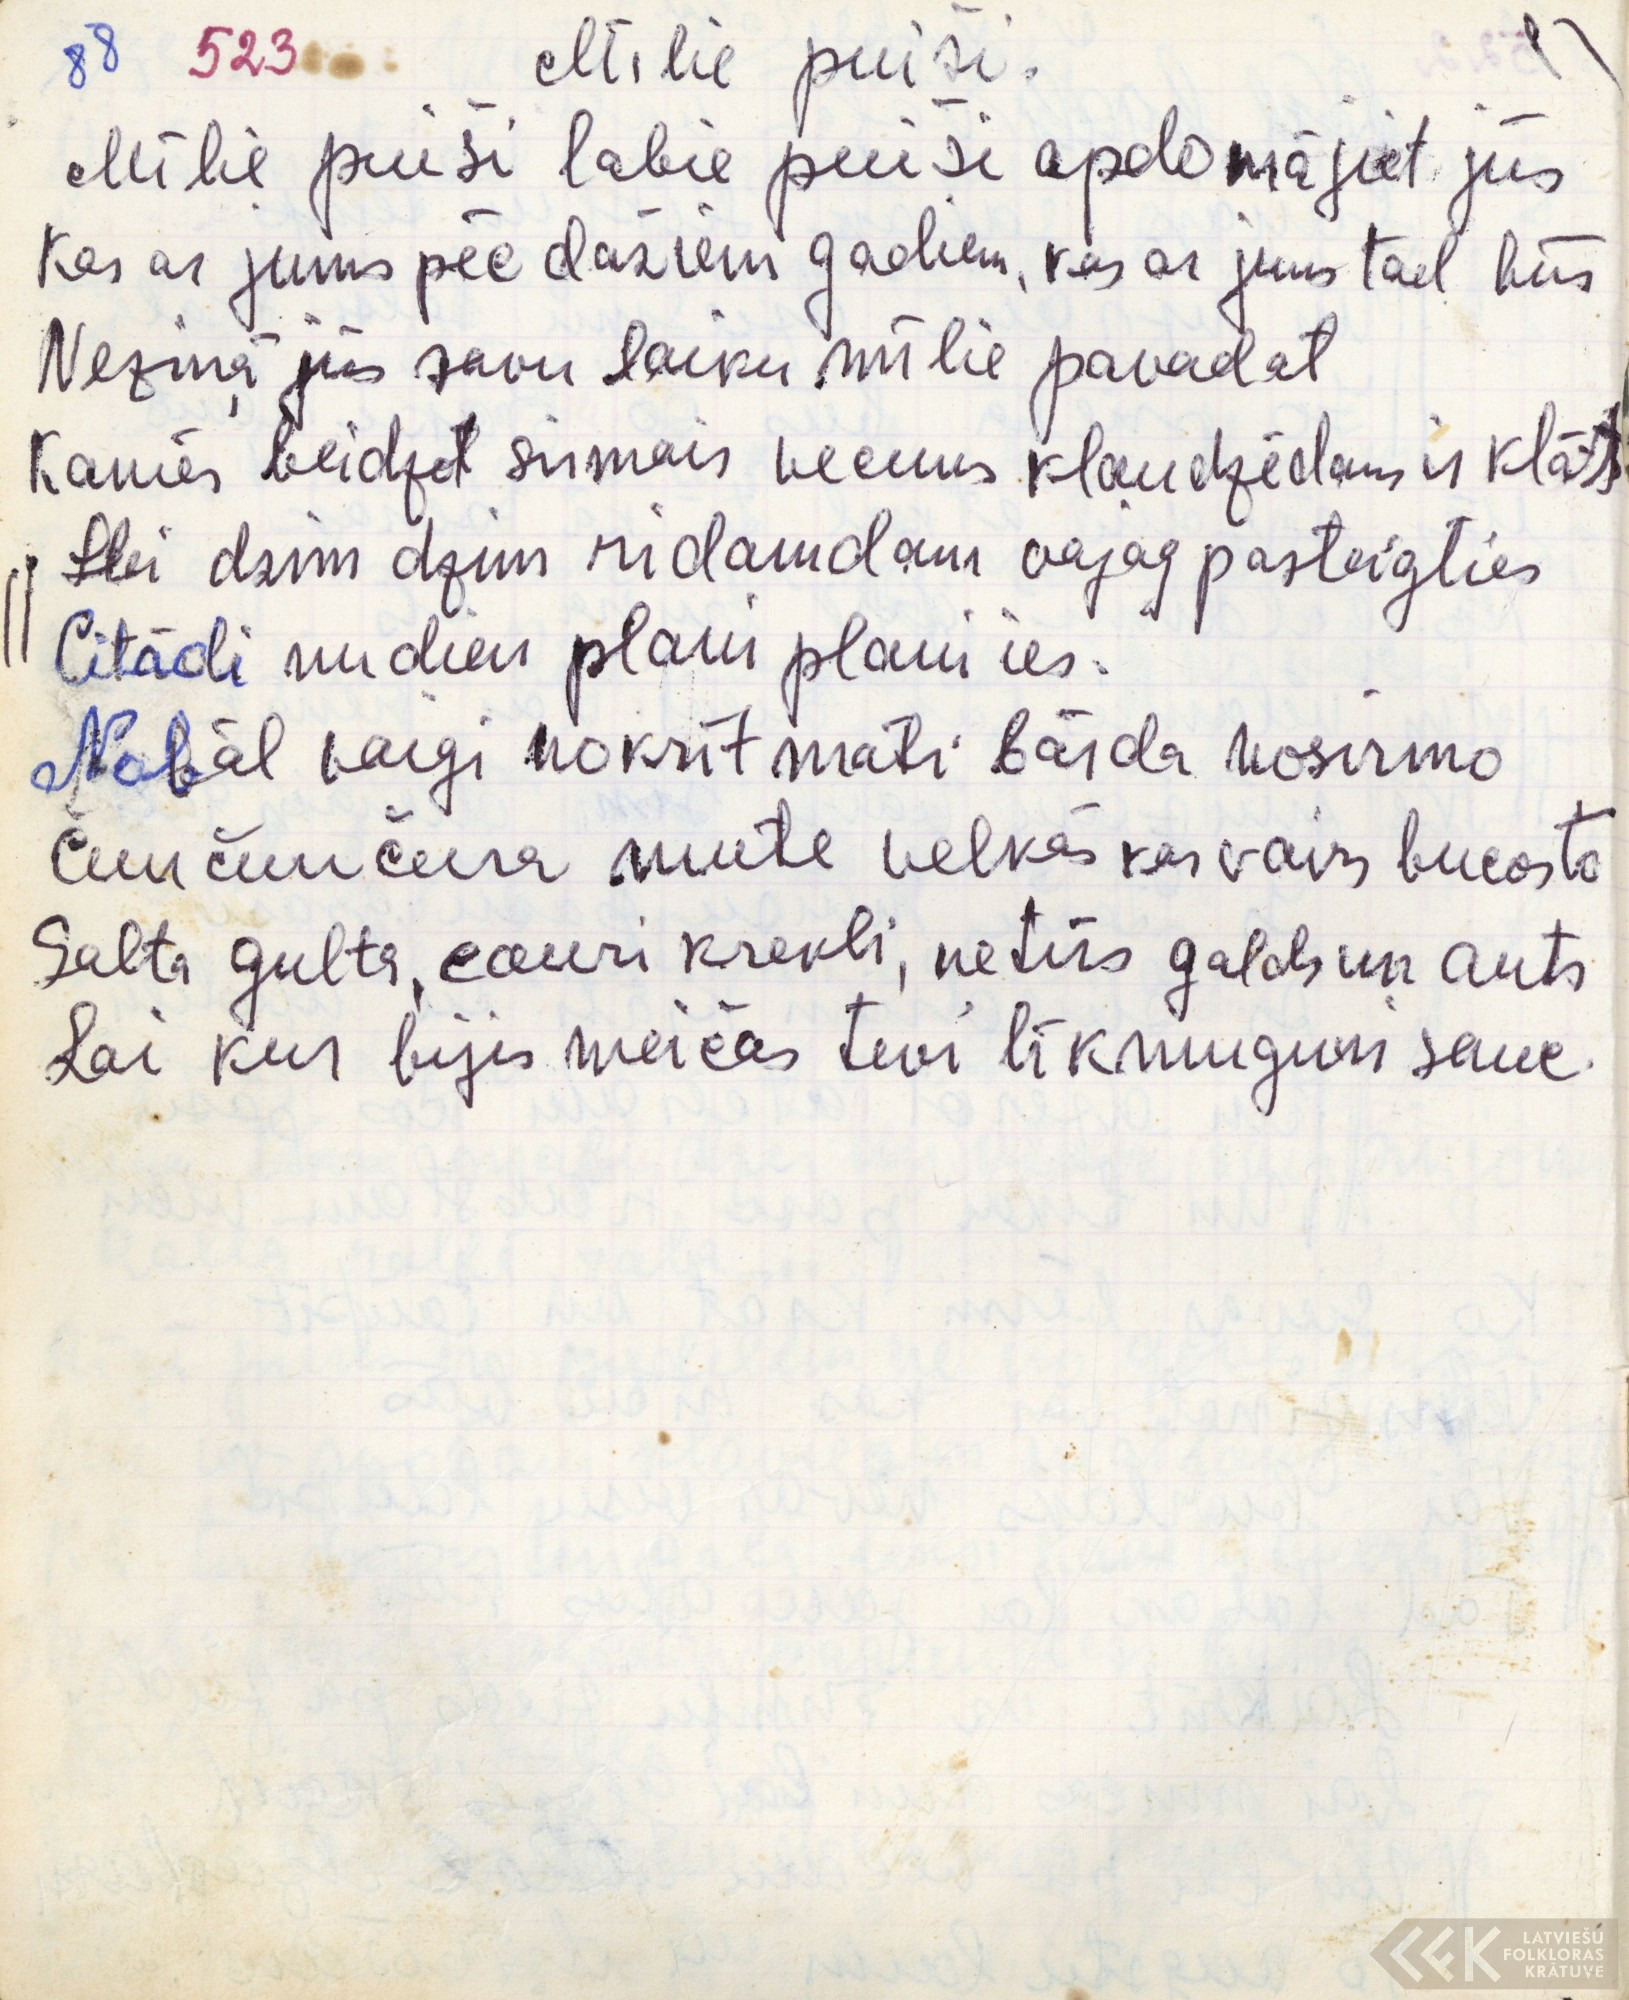 88 523 Mīlie puiši.
Mīlie puiši labie puiši apdomājiet jūs
Kas ar jums pēc dažiem gadiem, kas ar jums tad būs
Neziņā jūs savu laiku mīlie pavadat
Kamēs beidzot sirmais vecums klaudzēdams ir klāt
Hei dzim dzim ridamdam vajag pasteigties
Citādi nudien plāni plāni ies.
Nobāl vaigi nokrīt mati bārda nosirmo
Čunčunčura mute velkās kas vairs bučos to
Salta gulta, cauri krekli, netīrs galds un auts
Lai kur bijis meičās tevi līkmuguri sauc.
LATVIEŠU
FOLKLORAS
KRĀTUVE